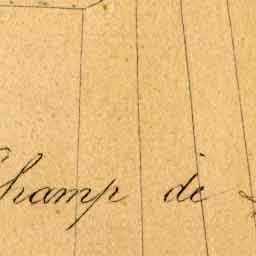 Champ de